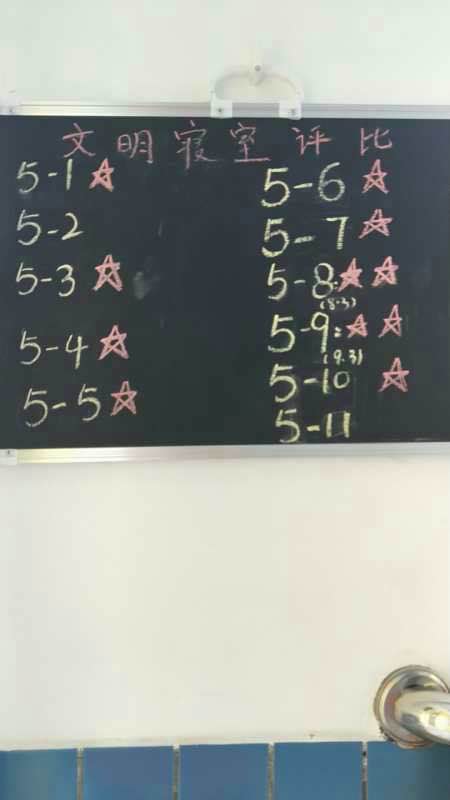 文明寝室评比
5-1 ☆
5-2
5-3 ☆
5-4 ☆
5-5 ☆
5-6 ☆
5-7 ☆
5-8: ☆ ☆
(8.3)
5-9: ☆ ☆
(9.3)
5-10 ☆
5-11